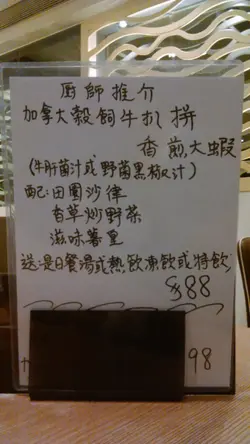 廚師推介
加拿大穀飼牛扒拼
香煎大蝦
(牛肝菌汁或野菌黑椒汁)
配:田園沙律
香草炒野菜
滋味薯皇
送是日餐湯或熱飲凍飲或特飲
$88
98